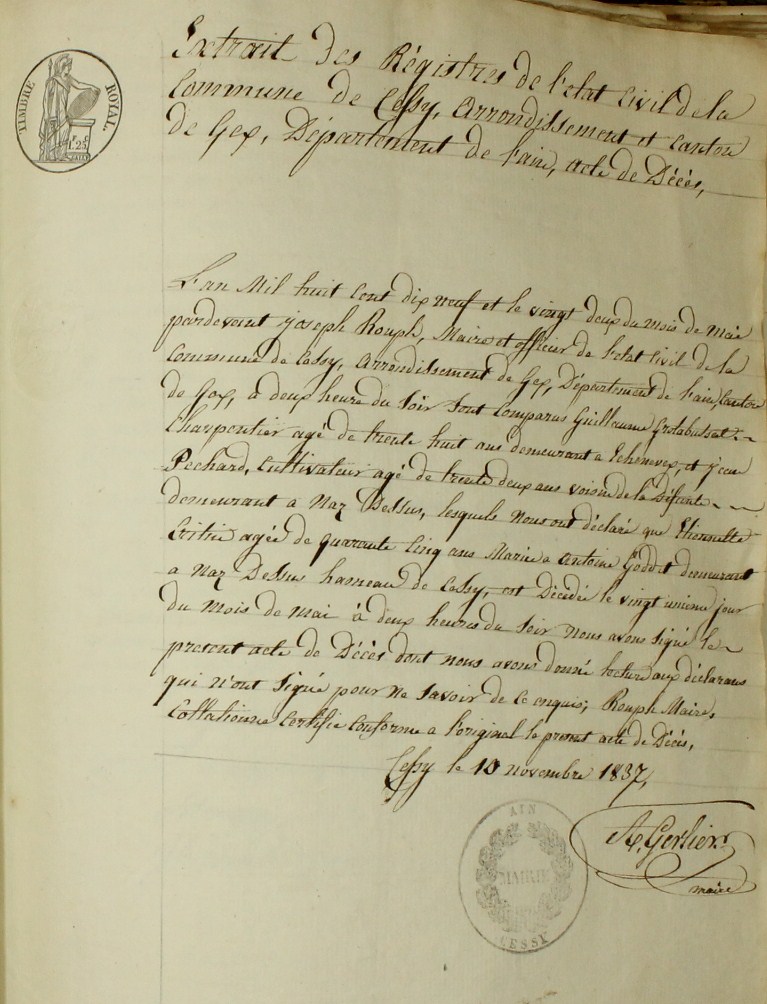 TIMBRE ROYAL.
1F. 25C
Extrait Des Régistres De l'etat Civil de la
Commune de Cessy, Arrondissement et canton
de Gex, Département de l'ain, acte de Décès,
L'an Mil huit Cent dix neuf et le vingt deux du mois de mai
pardevant joseph Rouph, Maire et officier de l'etat Civil de la
Commune de Cessy, Arrondissement de Gex, Département de l'ain, Canton
de Gex, a deux heure du Soir Sont Comparus Guillaume Grosbalsat
Charpentier agé de trente huit ans demeurant a Echenevex, et jean
Pechard, Cultivateur agé de trente deux ans voisin de la Défunte
demeurant a Naz Dessus, lesquels Nous ont déclaré que Etiennette
agée de quarante Cinq ans Mariée a Antoine Goddet demeurant
a Naz Dessus hameau de Cessy, est Décédée le vingt unieme jour
du Mois de Mai à deux heures du Soir Nous avons Signé le
present acte de Décès dont nous avons donné lecture aux déclarans
qui n'ont Signé pour ne Savoir de Ce enquis; Rouph Maire,
Collationné Certifie Conforme a l'original le present acte de Décès,
Cessy le 10 novembre 1837,
A. Gerlier
maire
AIN
MAIRIE
CESSY